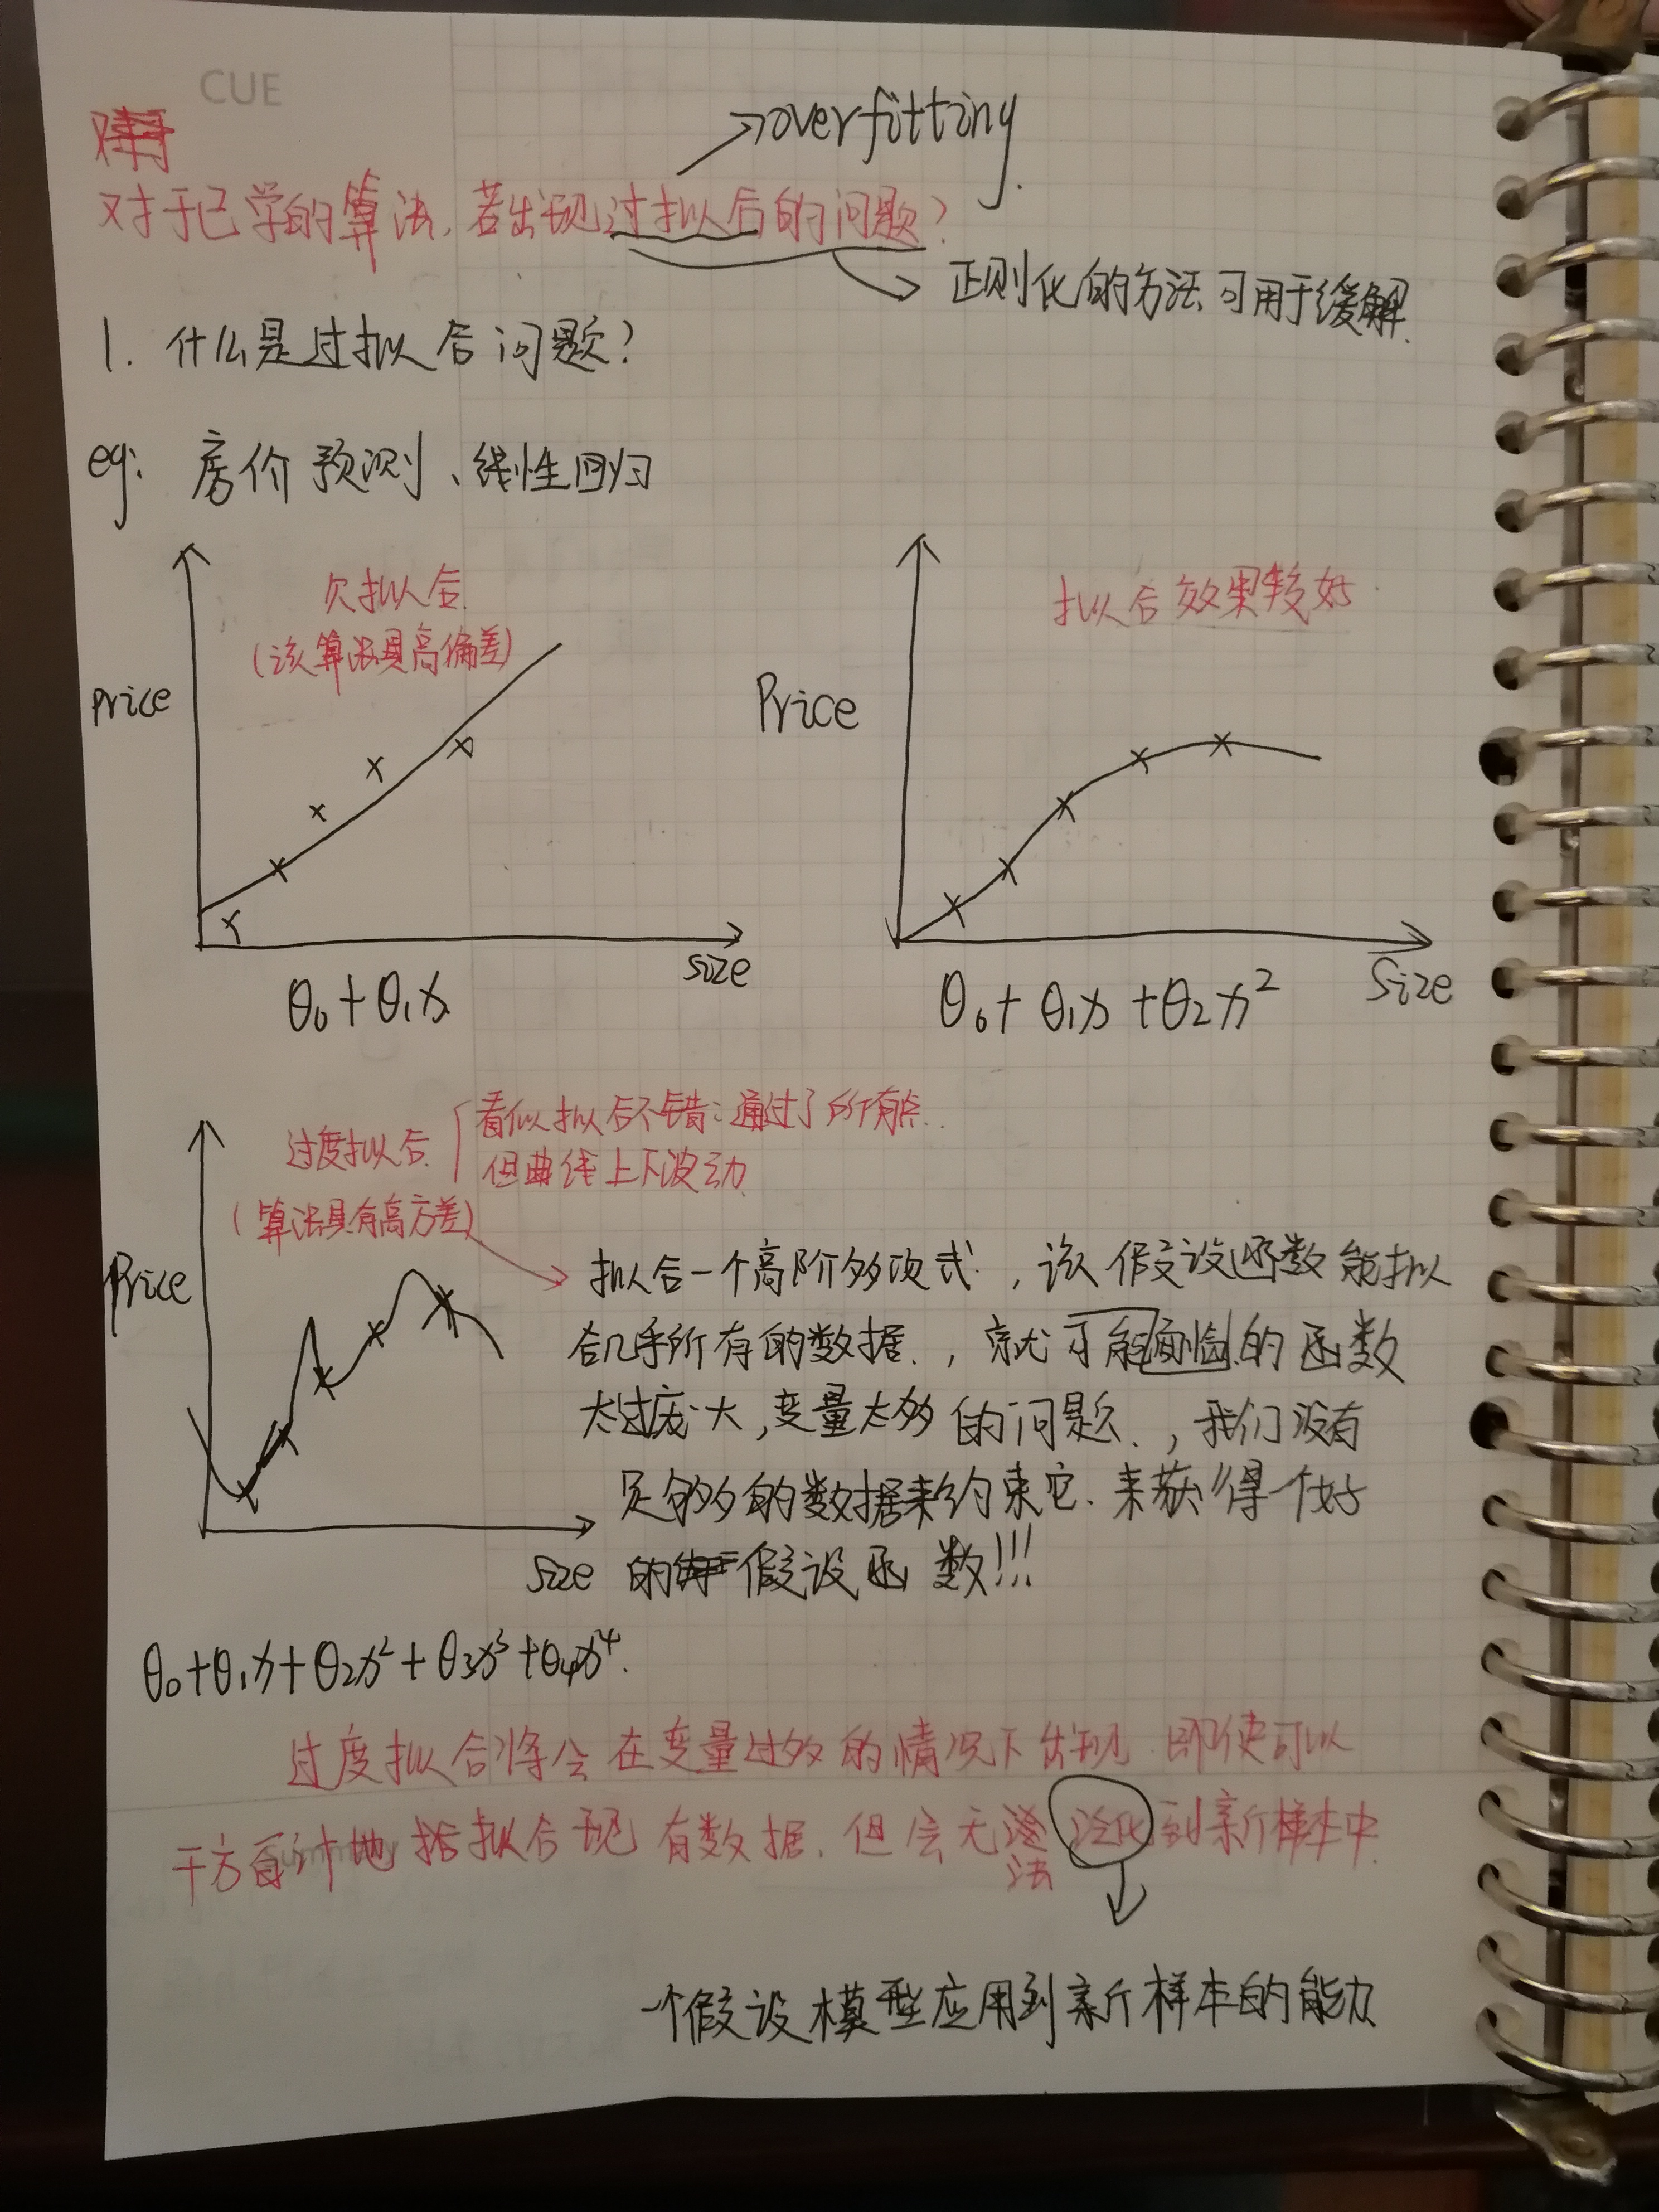 CUE
overfitting
对于已学的算法,若出现过拟合的问题?
正则化的方法可用于缓解.
1. 什么是过拟合问题?
eg: 房价预测、线性回归
欠拟合
(该算法具高偏差)
Price
size
θ₀+θ₁x
拟合效果较好.
Price
Size
θ₀+θ₁x+θ₂x²
过度拟合
(算法具有高方差)
看似拟合不错:通过了所有点.
但曲线上下波动
Price
Size
拟合一个高阶多项式,该假设函数能拟
合几乎所有的数据.,就可能面临的函数
太过庞大,变量太多的问题.,我们没有
足够多的数据来约束它.来获得一个好
的假设函数!!!
θ₀+θ₁x+θ₂x²+θ₃x³+θ₄x⁴.
过度拟合将会在变量过多的情况下出现.即使可以
千方百计地 拟合现有数据,但会无法泛化到新样本中.
Summary
一个假设模型应用到新样本的能力